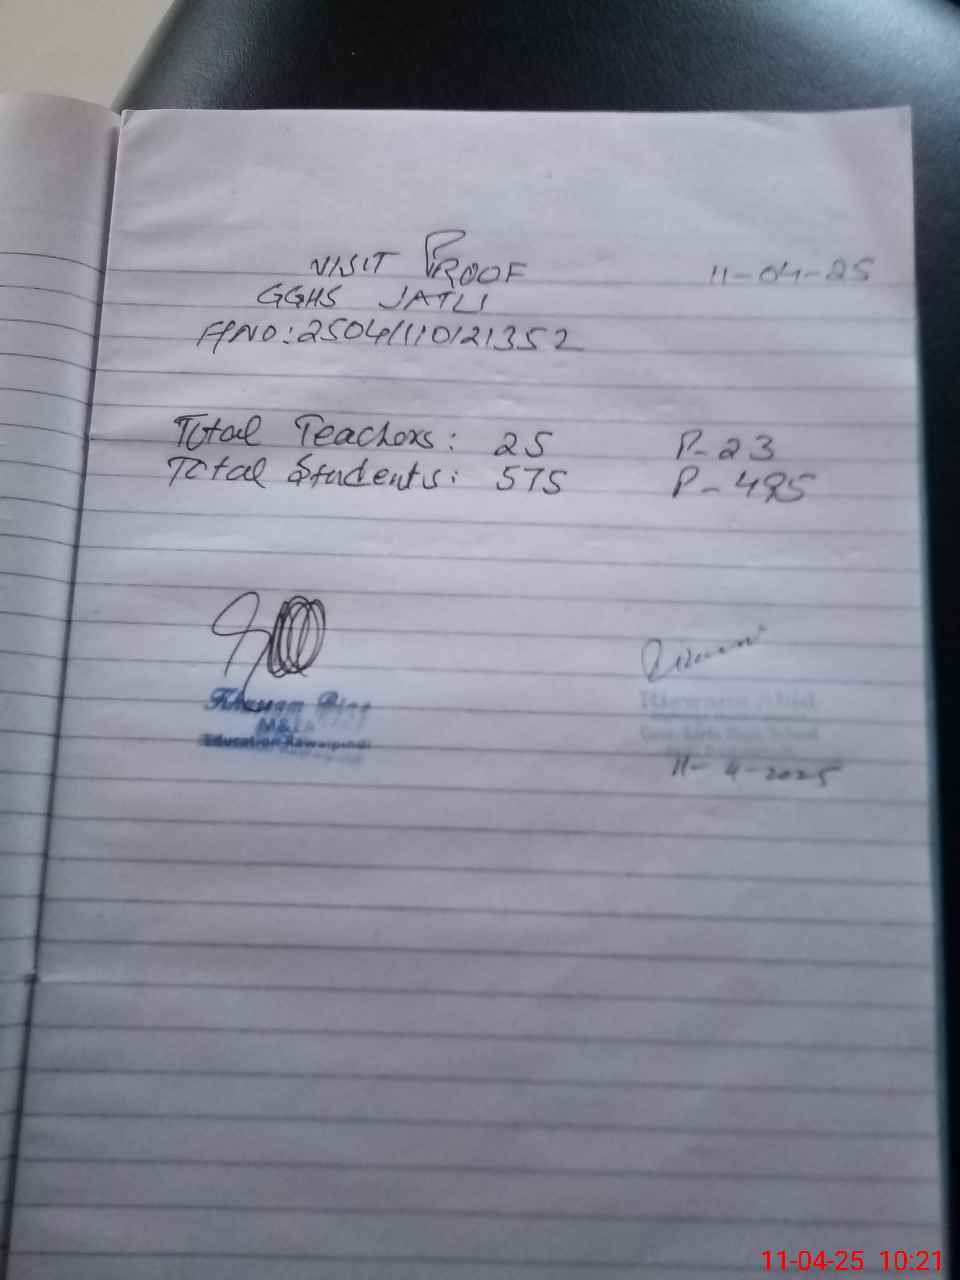 VISIT PROOF 11-04-25
GGHS JATLI
2504110121352
Total Teachers: 25 P-23
Total Students: 575 P-495
Khurram
M&EA
Education Rawalpindi
Rizwana Abid
Govt. Girls High School
11-4-2025
11-04-25 10:21